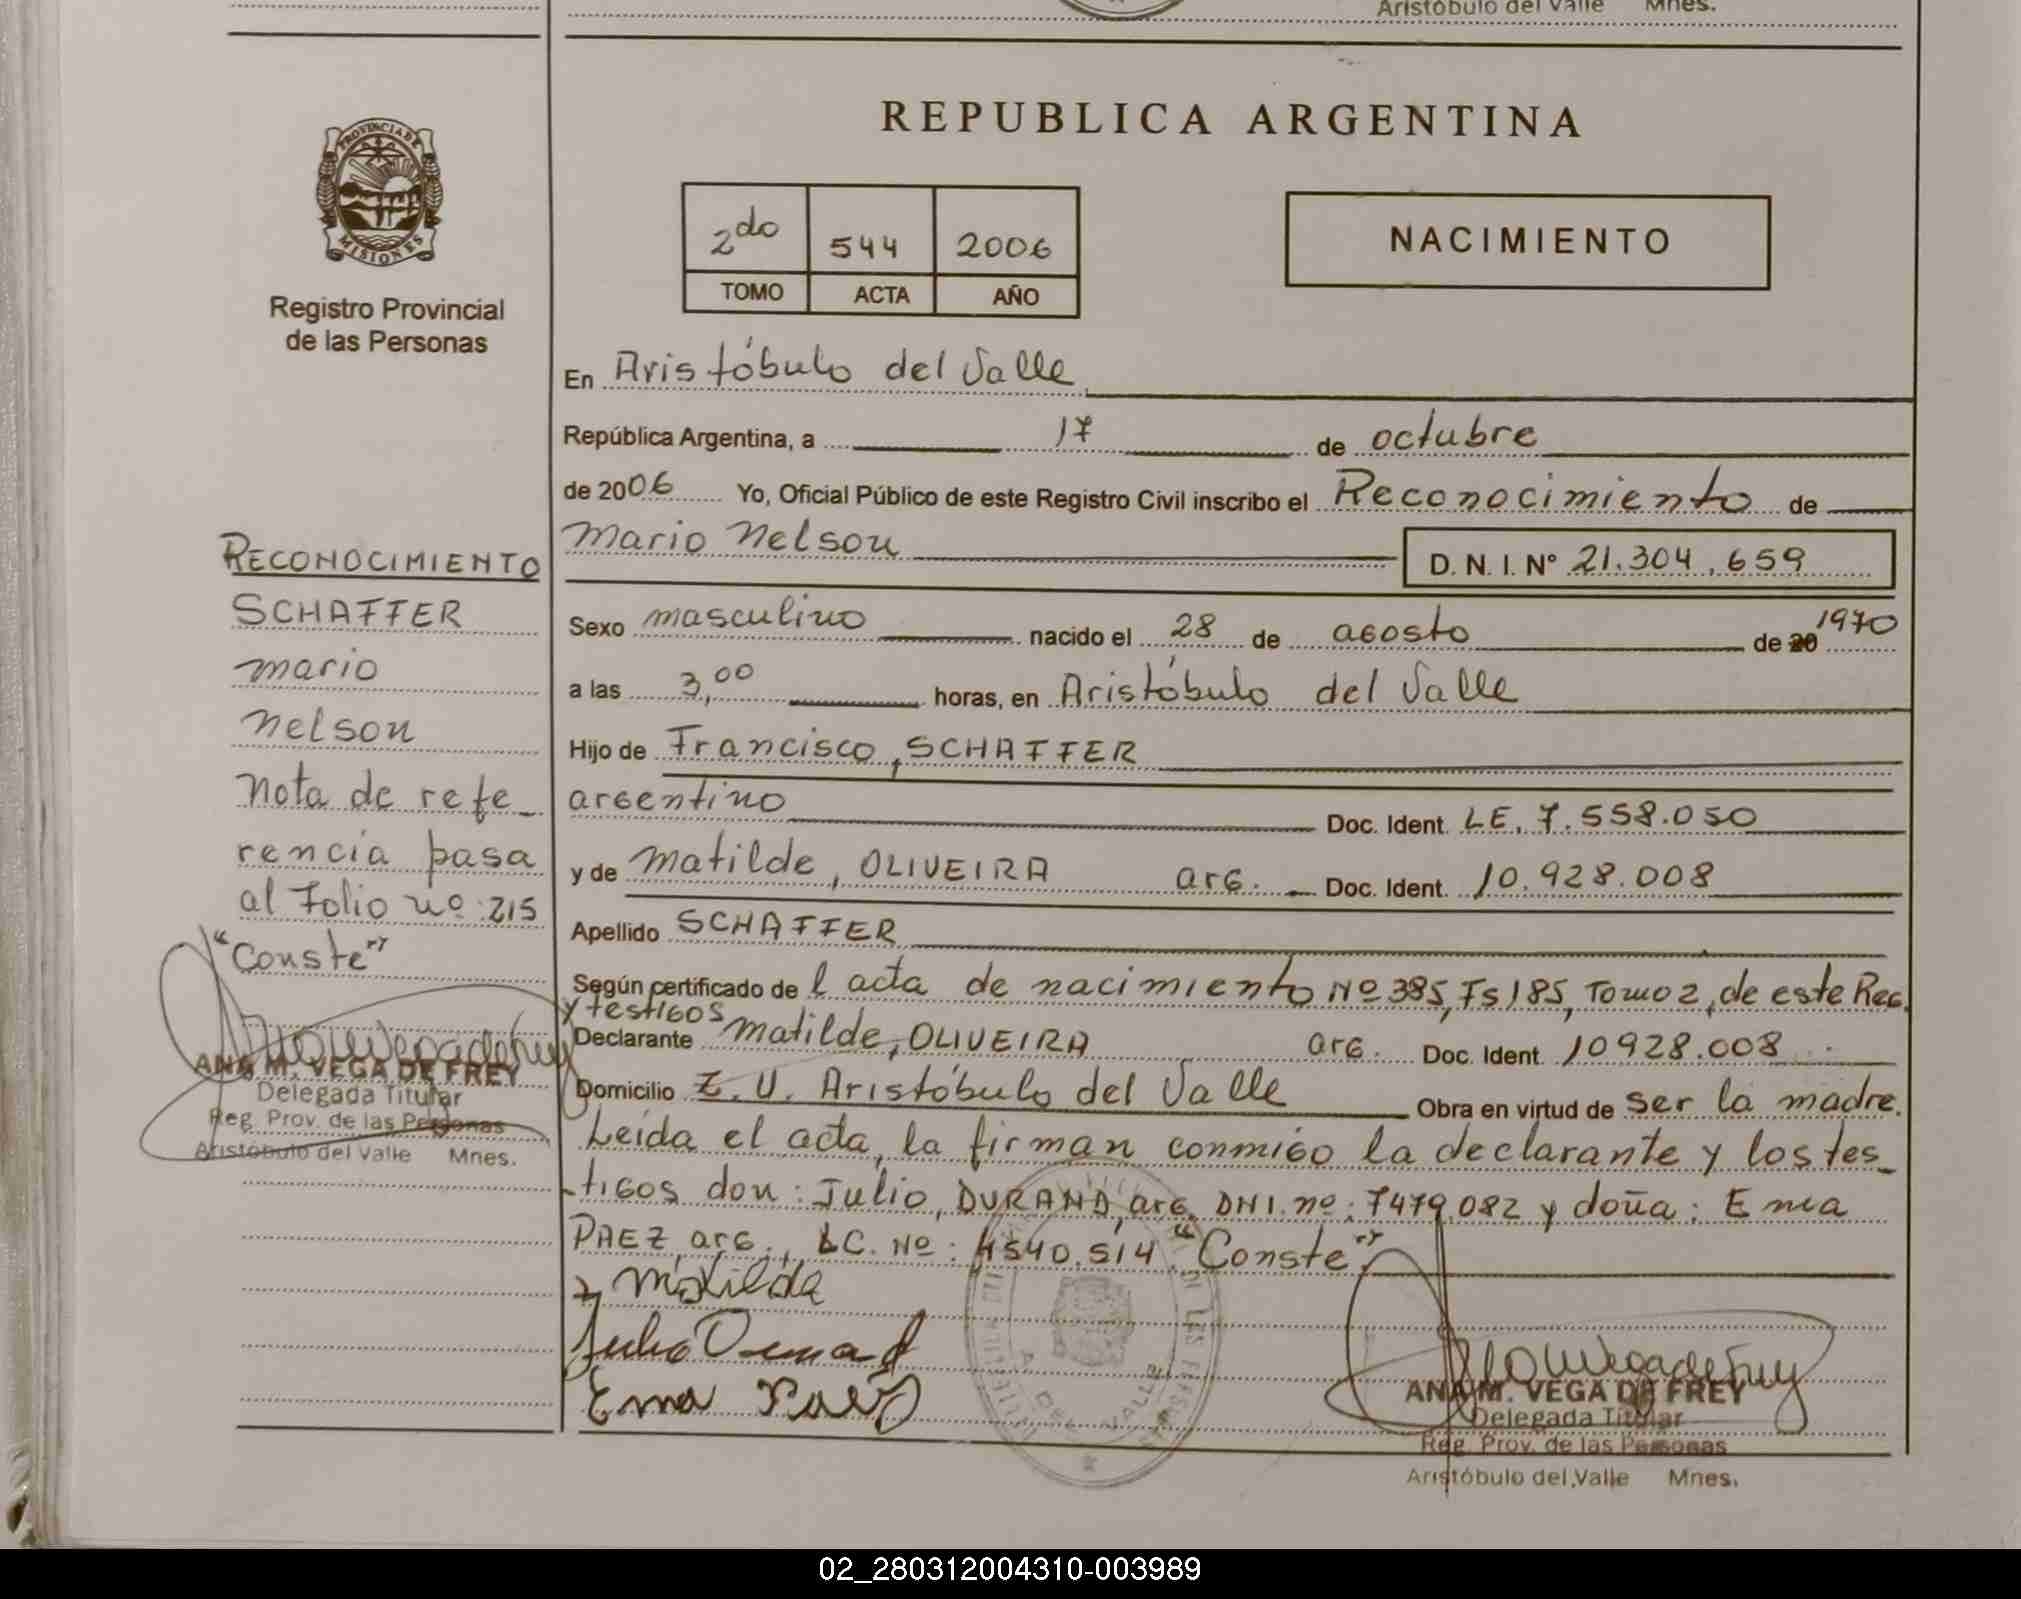 Aristóbulo del Valle Mnes.
REPUBLICA ARGENTINA
PROVINCIA DE
MISIONES
Registro Provincial
de las Personas
2do 544 2006
TOMO ACTA AÑO
NACIMIENTO
En Aristóbulo del Valle
República Argentina, a 17 de octubre
de 2006 Yo, Oficial Público de este Registro Civil inscribo el Reconocimiento de
Mario Nelson D. N. I. N° 21.304.659
Sexo masculino nacido el 28 de agosto de 20 1970
a las 3,00 horas, en Aristóbulo del Valle
Hijo de Francisco, SCHAFFER
argentino Doc. Ident. LE. 7.558.050
y de Matilde, OLIVEIRA arg. Doc. Ident. 10.928.008
Apellido SCHAFFER
Según certificado de l acta de nacimiento Nº 385, Fs 185, Tomo 2, de este Reg.
y testigos
Declarante Matilde, OLIVEIRA arg. Doc. Ident. 10928.008
Domicilio Z. U. Aristóbulo del Valle Obra en virtud de ser la madre.
Leída el acta, la firman conmigo la declarante y los tes_
_tigos don: Julio, DURAND, arg. DNI. nº: 7479.082 y doña: Ema
PAEZ, arg., LC. Nº: 4540.514 "Conste"
Matilda
Julio Durand
Ema Paez
ANA M. VEGA DE FREY
Delegada Titular
Reg. Prov. de las Personas
Aristóbulo del Valle Mnes.
RECONOCIMIENTO
SCHAFFER
Mario
Nelson
Nota de refe_
rencia pasa
al Folio nº 215
"Conste"
ANA M. VEGA DE FREY
Delegada Titular
Reg. Prov. de las Personas
Aristóbulo del Valle Mnes.
02_280312004310-003989